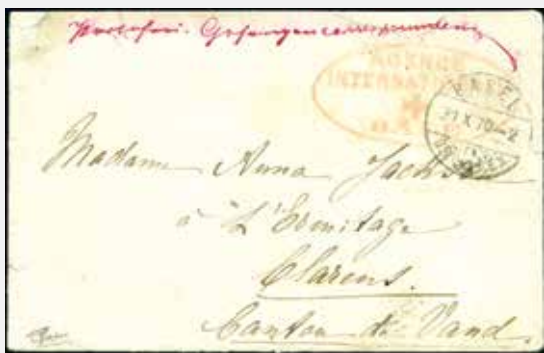 Portofrei. Gefangenencorrespondenz
AGENCE
INTERNATIONALE
BALE
BASEL
31 X 70-2
Madame Anna
à L'Ermitage
Clarens.
Canton de Vaud.